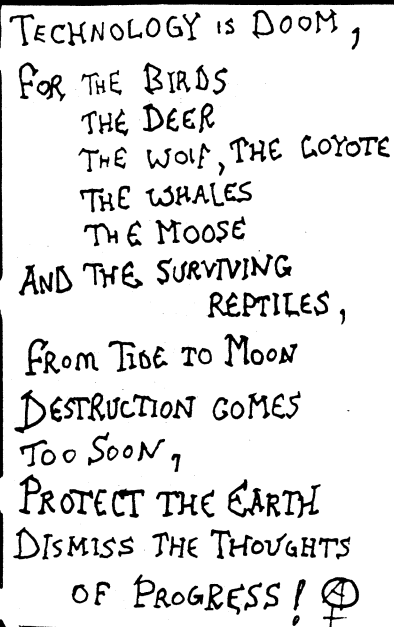 TECHNOLOGY IS DOOM,
FOR THE BIRDS
THE DEER
THE WOLF, THE COYOTE
THE WHALES
THE MOOSE
AND THE SURVIVING
REPTILES,
FROM TIDE TO MOON
DESTRUCTION COMES
TOO SOON,
PROTECT THE EARTH
DISMISS THE THOUGHTS
OF PROGRESS!